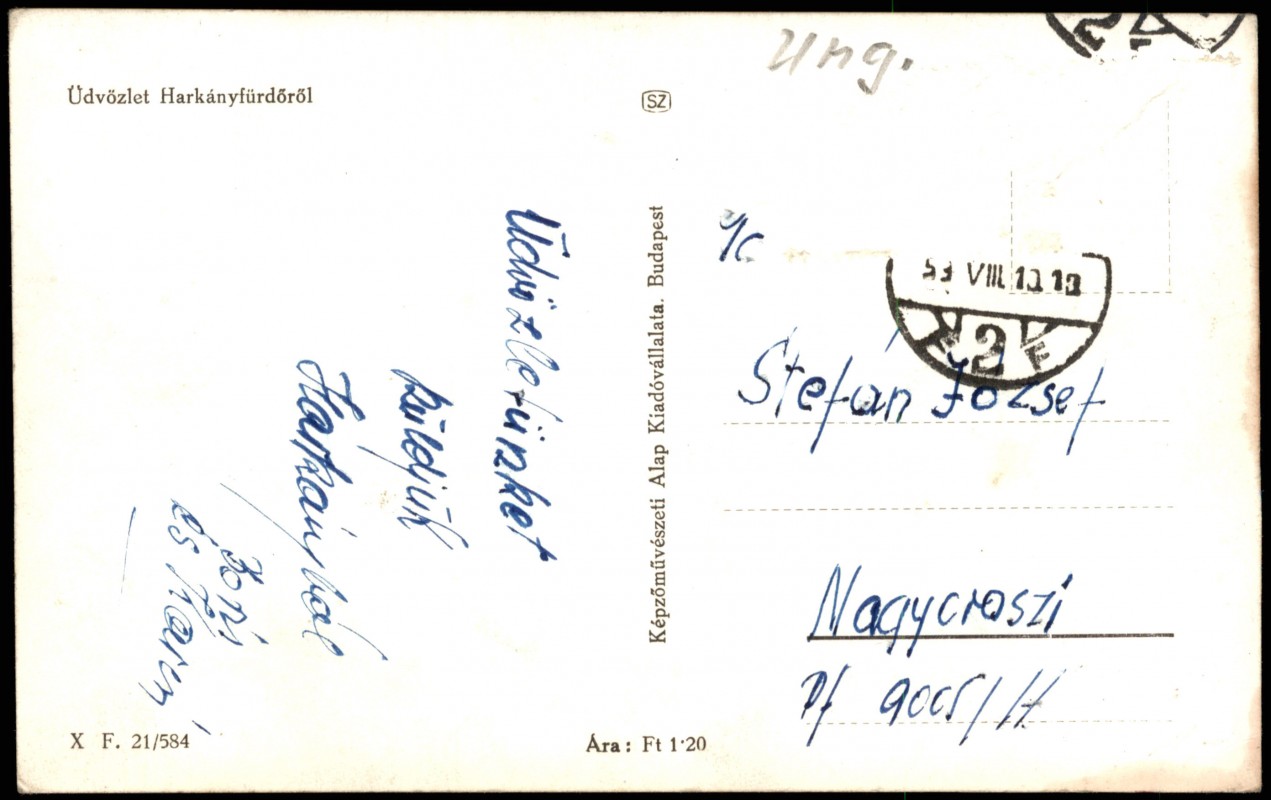 Üdvözlet Harkányfürdőről
SZ
Ung.
Üdvözletünket
küldjük
Harkányból
és Marcsi
Képzőművészeti Alap Kiadóvállalata. Budapest
VIII. 10. 18
2
Stefán József
Nagyoroszi
Pf 9005/H
X F. 21/584
Ára: Ft 1·20